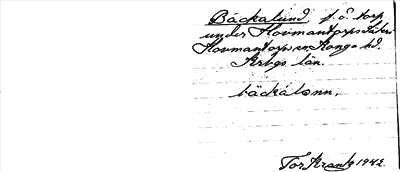 Bäckalund, f. ö. torp
under Hovmantorps säteri
Hovmantorp sn Konga hd.
Krbgs län.
bäckalonn,
Tor Krantz 1942.